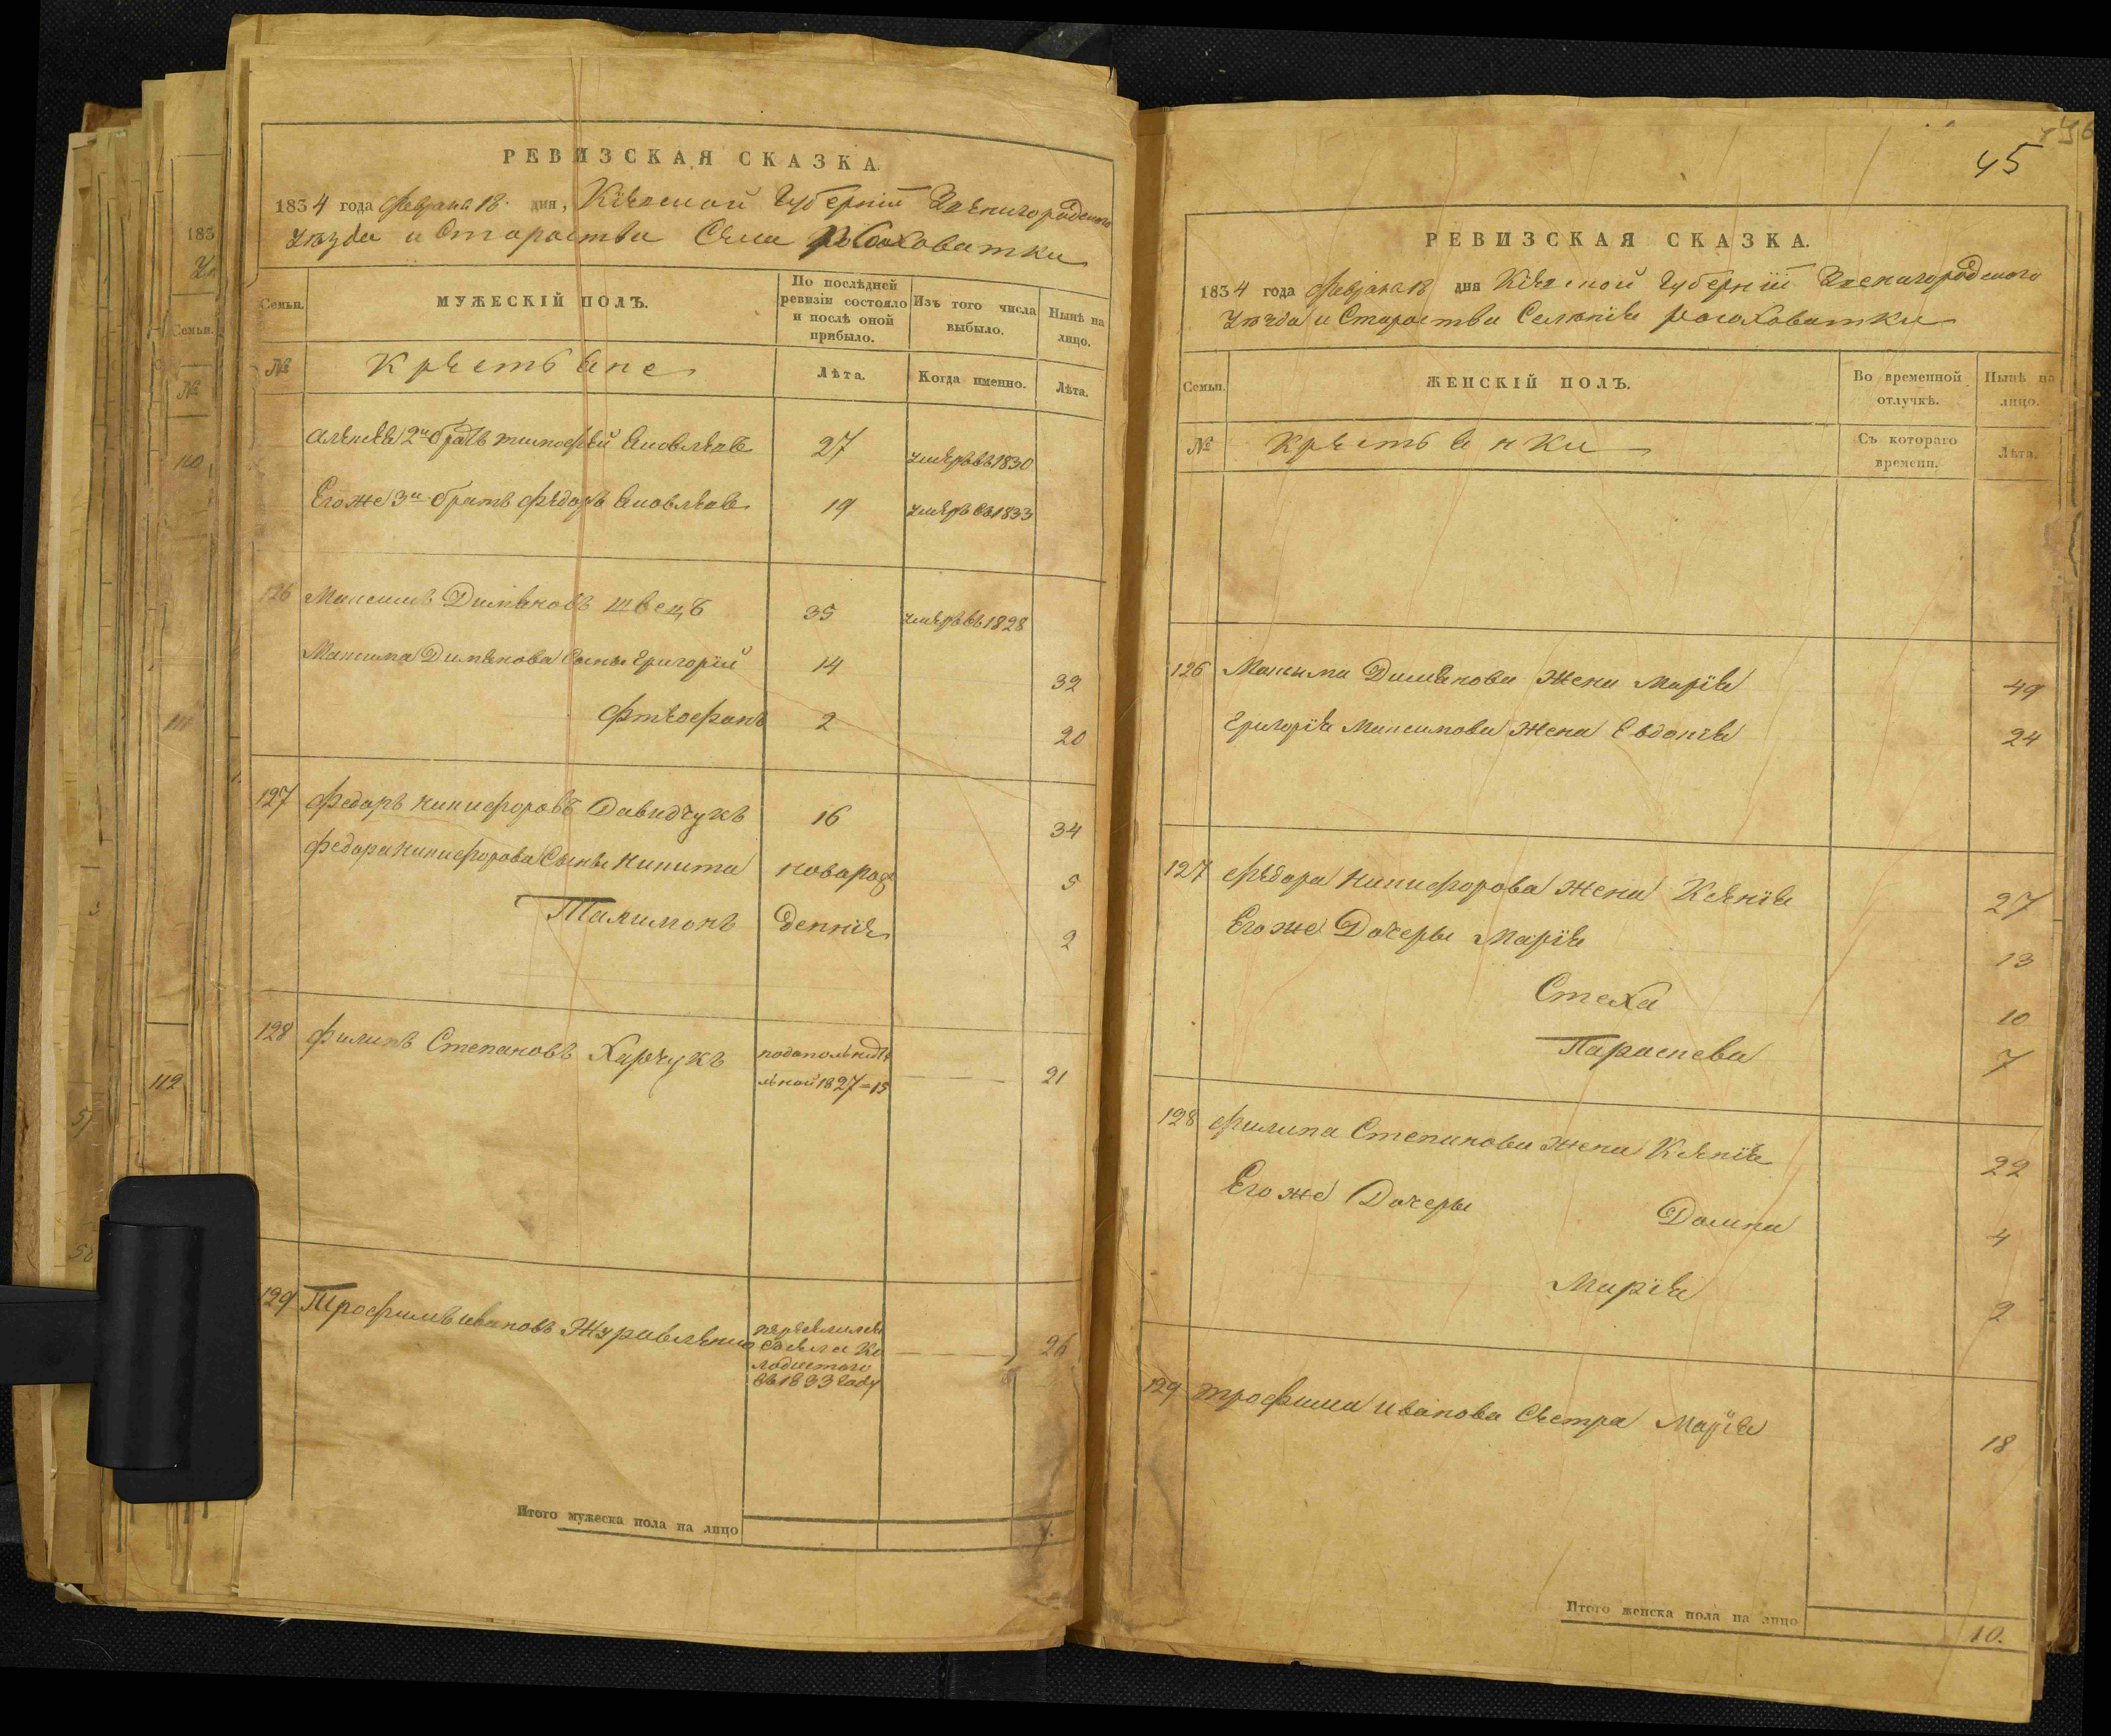 РЕВИЗСКАЯ СКАЗКА.
1834 года февраля 18 дня, Кіевской Губерніи Звенигородского
Уѣзда и Староства Села Рогоховатки
Семьи.
МУЖЕСКІЙ ПОЛЪ.
По послѣдней ревизіи состояло и послѣ оной прибыло.
Изъ того числа выбыло.
Нынѣ на лицо.
№
Крестьяне
Лѣта.
Когда именно.
Лѣта.
Алексея 2й братъ тимофей Яковлевъ 27 умеръ въ 1830
Его же 3й братъ федоръ Яковлевъ 19 умеръ въ 1833
126 Максимъ Димяновъ швецъ 35 умеръ въ 1828
Максима Димянова Сыны Григорій 14 32
Фтеофанъ 2 20
127 федоръ никифоровъ Давидчукъ 16 34
федора никифорова Сыны никита новорож 5
Талимонъ денніе 2
128 филипъ Степановъ Харчукъ 21
1827 = 15
129 Трофимъ ивановъ Журавленко 26
переселился
съ села Ко
лодистого
въ 1833 году
Итого мужеска пола на лицо 7.
45
РЕВИЗСКАЯ СКАЗКА.
1834 года февраля 18 дня Кіевской Губерніи Звенигородского
Уѣзда и Староства Селенія рогоховатки
Семьи.
ЖЕНСКІЙ ПОЛЪ.
Во временной отлучкѣ.
Нынѣ на лицо.
№
Крестьянки
Съ котораго времени.
Лѣта.
126 Максима Димянова Жена Марія 49
Григорія Максимова Жена Евдокія 24
127 федора никифорова жена Ксенія 27
Его же Дочеры Марія 13
Стеха 10
Параскева 7
128 филипа Степанова жена Ксенія 22
Его же Дочеры Домна 4
Марія 2
129 трофима иванова Сестра Марія 18
Итого женска пола на лицо 10.